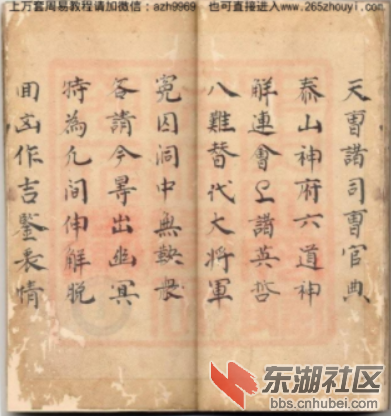 上万套周易教程请加微信：azh9969 也可直接进入www.265zhouyi.com
天曹諸司曹官典
泰山神府六道神
祥連會上諸英哲
八難替代大將軍
冤囚洞中無執
各請今尋出幽冥
特為凡間伸解脫
回凶作吉鑒衷情
东湖社区
bbs.cnhubei.com